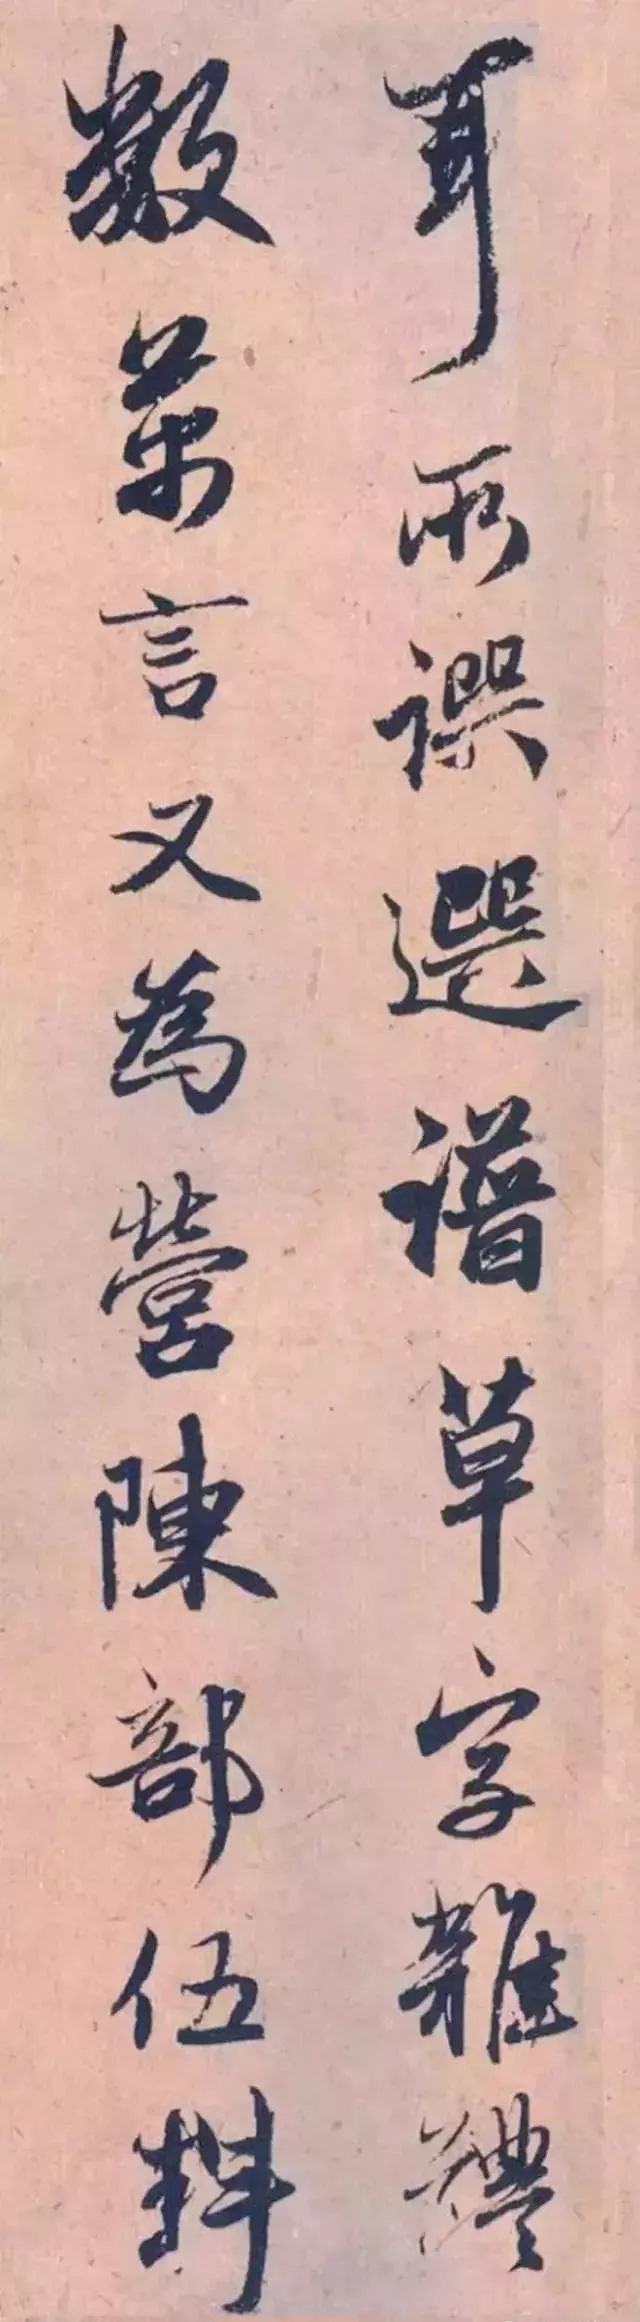 耳所譔選譜草字雜體
數萬言又為營陳部伍